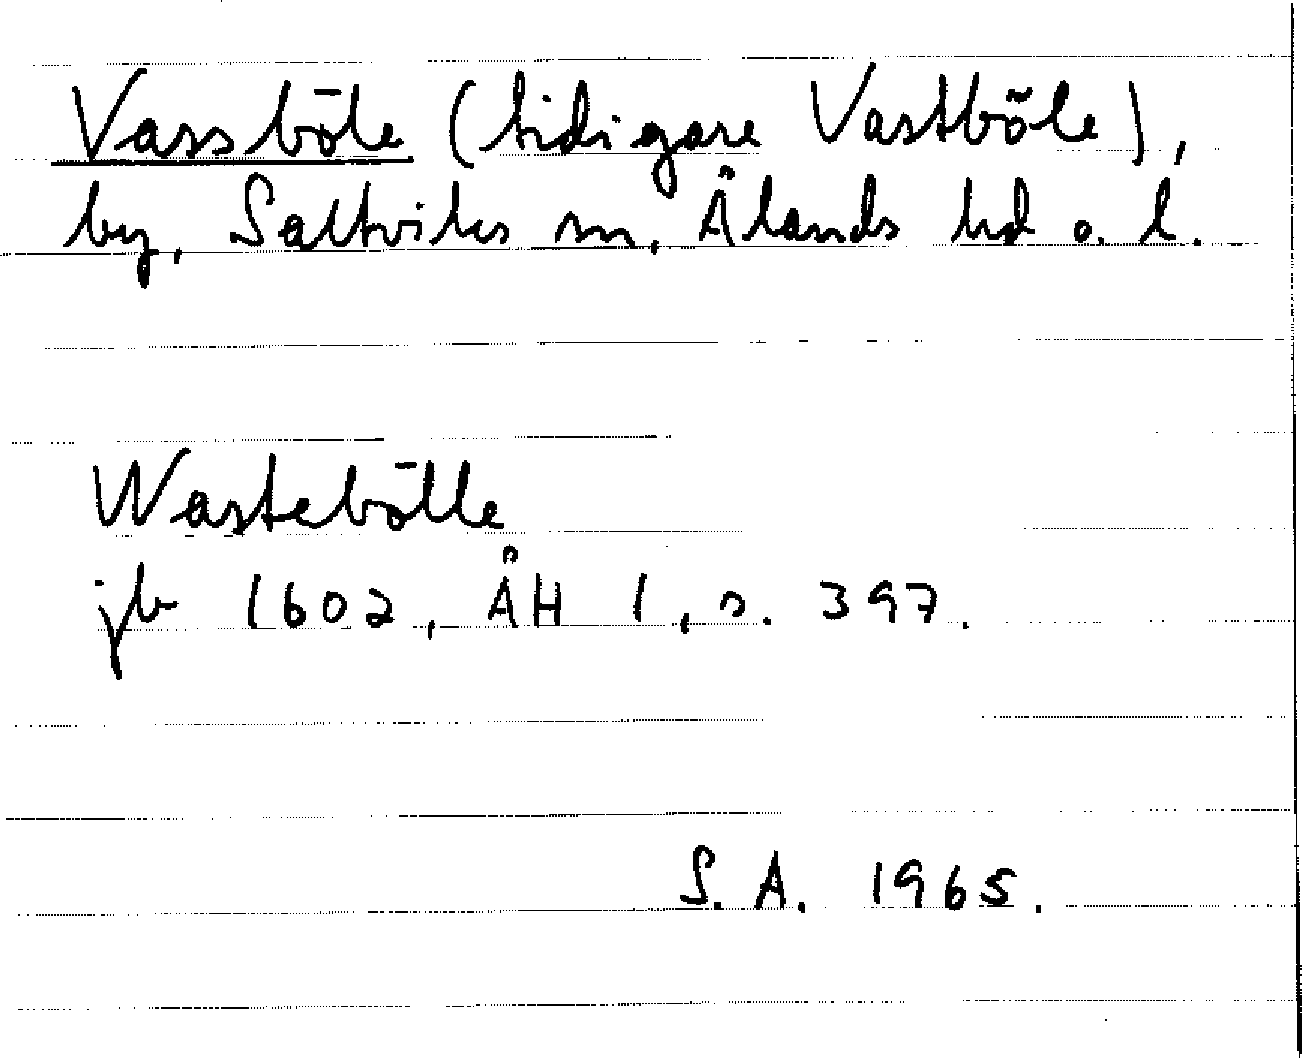 Vassböle (tidigare Vastböle),
by, Saltviks sn, Ålands hd o. l.
Wastebölle
jb 1602, ÅH 1, s. 397.
S. A. 1965.